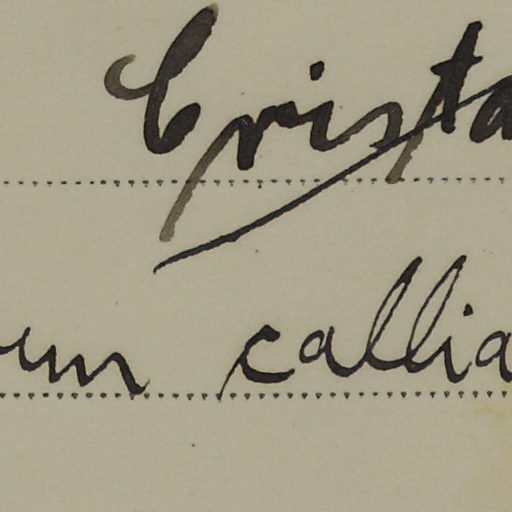 Crista
um callia